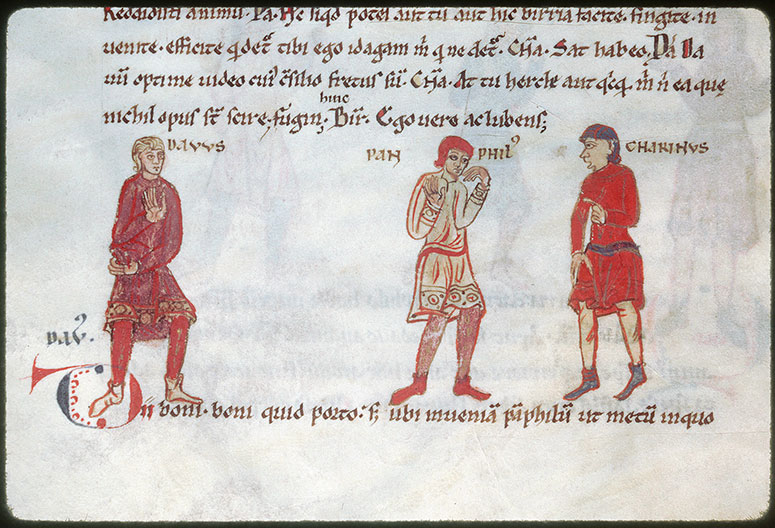 Reddidisti animū. Pa. Hc̄ liqd potes aut tu aut hic birria facite. fingite. in
uenite. efficite qdet̄ tibi ego id agam m̄ q ne det̄. Cha. Sat habeo. Pā. Da
uū optime uideo cui' c̄silio fretus sū. Cha. At tu hercle aut qc̄q m̄ n̄ ea quę
huic
nichil opus st̄ scire. fugin. Bir. Ego uero ac lubens;
DAVVS
PAN PHIL'
CHARINVS
DAV'.
Dii boni. boni quid porto. S; ubi inueniā pāphilū ut metū inquo